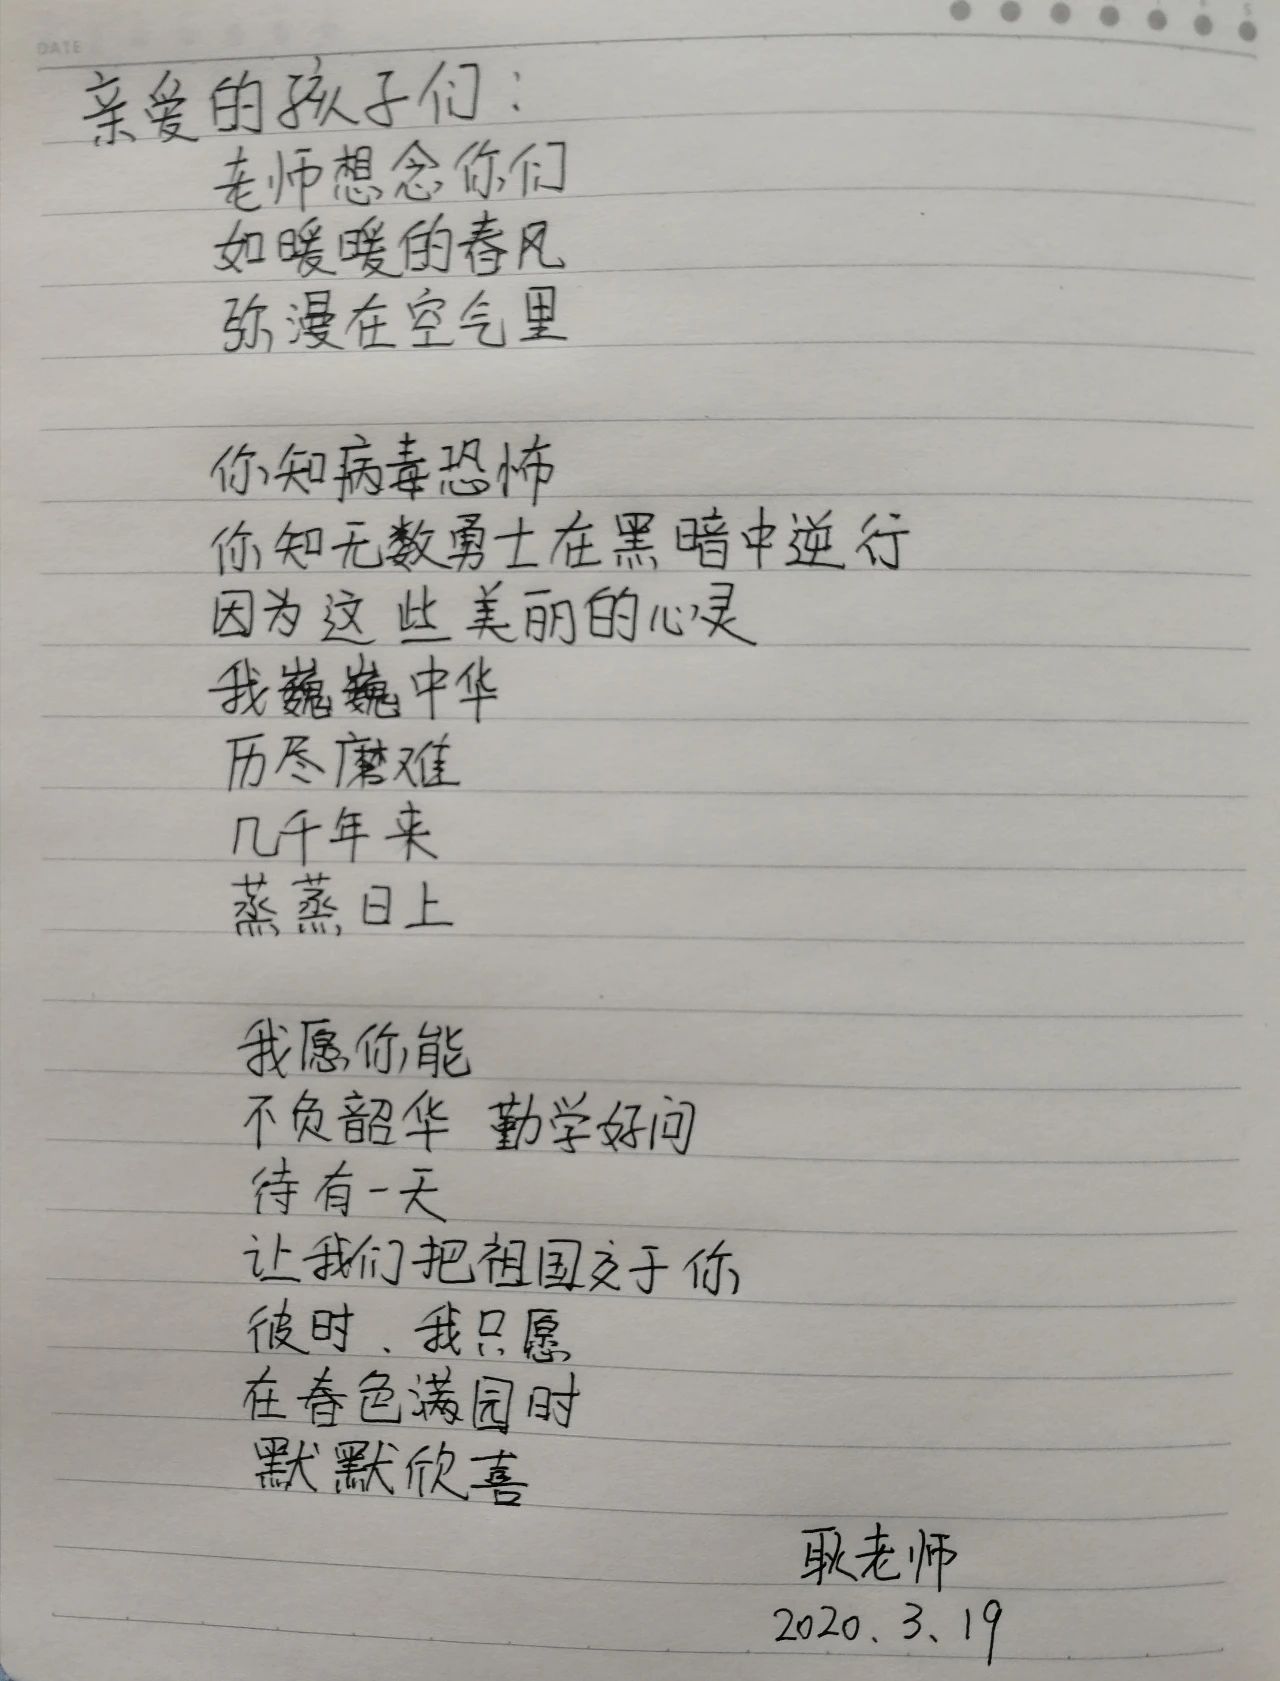 DATE
亲爱的孩子们：
老师想念你们
如暖暖的春风
弥漫在空气里
你知病毒恐怖
你知无数勇士在黑暗中逆行
因为这些美丽的心灵
我巍巍中华
历尽磨难
几千年来
蒸蒸日上
我愿你能
不负韶华 勤学好问
待有一天
让我们把祖国交于你
彼时、我只愿
在春色满园时
默默欣喜
耿老师
2020.3.19